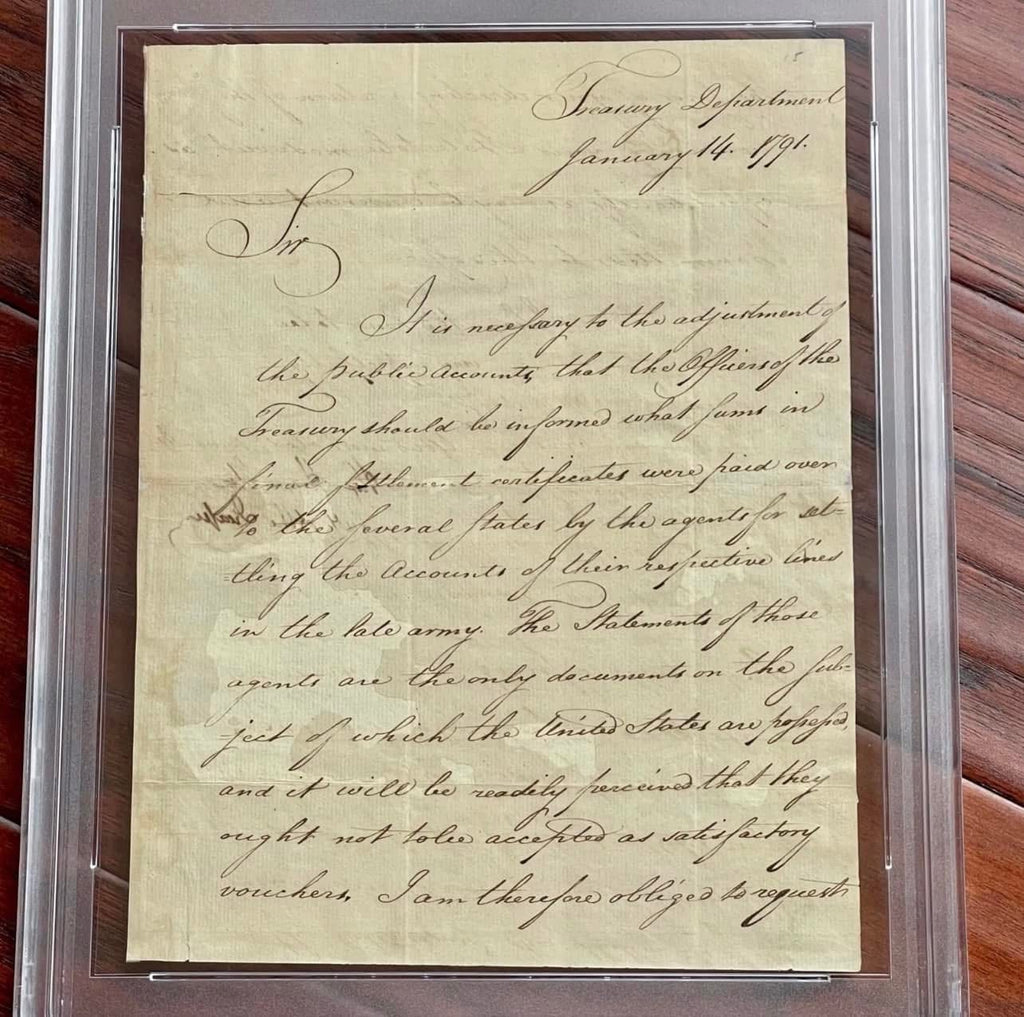 15
Treasury Department
January 14. 1791.
Sir
It is necessary to the adjustment of
the public accounts, that the Officers of the
Treasury should be informed what sums in
final settlement certificates were paid over
to the several States by the agents for set=
=tling the accounts of their respective lines
in the late army. The Statements of those
agents are the only documents on the sub=
=ject of which the United States are possessed,
and it will be readily perceived that they
ought not to be accepted as satisfactory
vouchers. I am therefore obliged to request